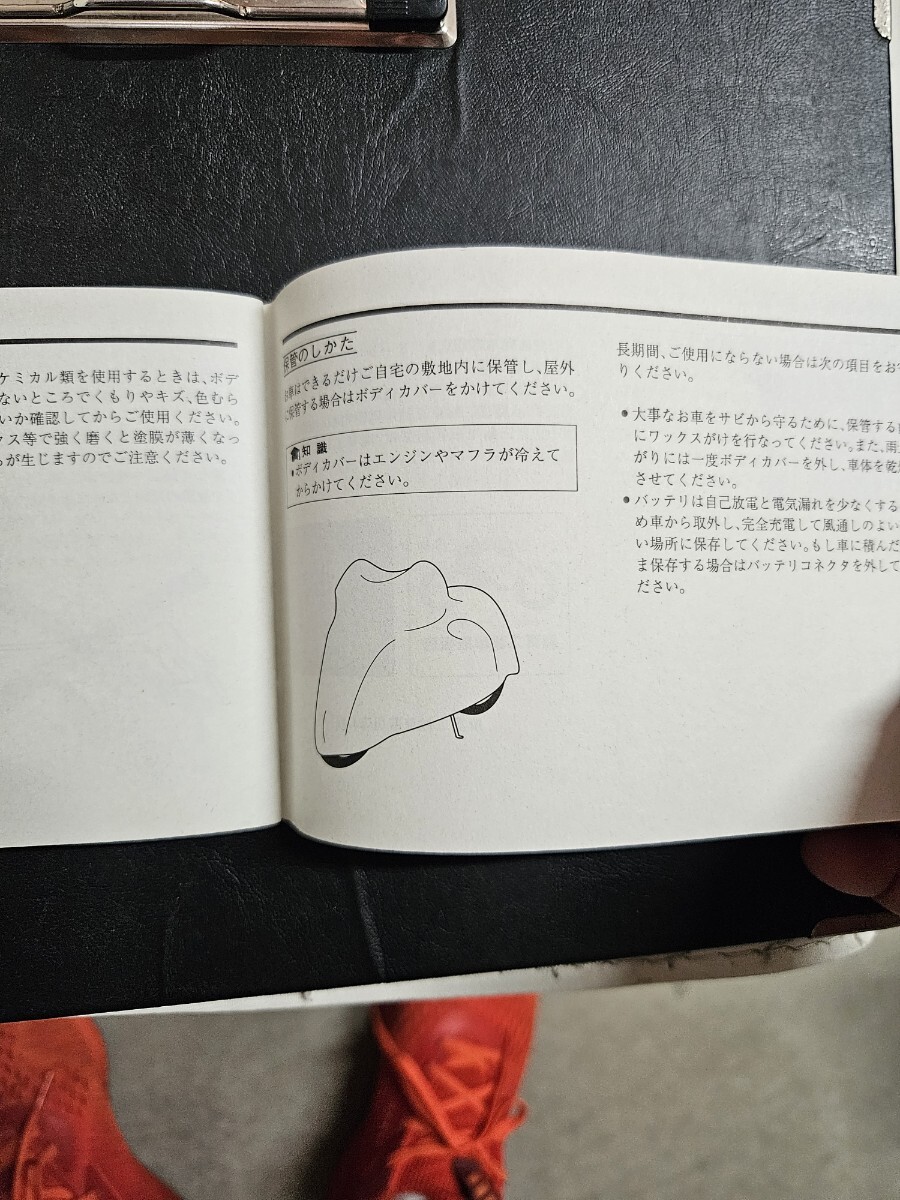 ケミカル類を使用するときは、ボデ
ないところでくもりやキズ、色むら
いか確認してからご使用ください。
クス等で強く磨くと塗膜が薄くなっ
が生じますのでご注意ください。
保管のしかた
お車はできるだけご自宅の敷地内に保管し、屋外
に保管する場合はボディカバーをかけてください。
知 識
•ボディカバーはエンジンやマフラが冷えて
からかけてください。
長期間、ご使用にならない場合は次の項目をお
りください。
•大事なお車をサビから守るために、保管する
にワックスがけを行なってください。また、雨
がりには一度ボディカバーを外し、車体を乾
させてください。
•バッテリは自己放電と電気漏れを少なくする
め車から取外し、完全充電して風通しのよい
い場所に保存してください。もし車に積んだ
ま保存する場合はバッテリコネクタを外して
ださい。